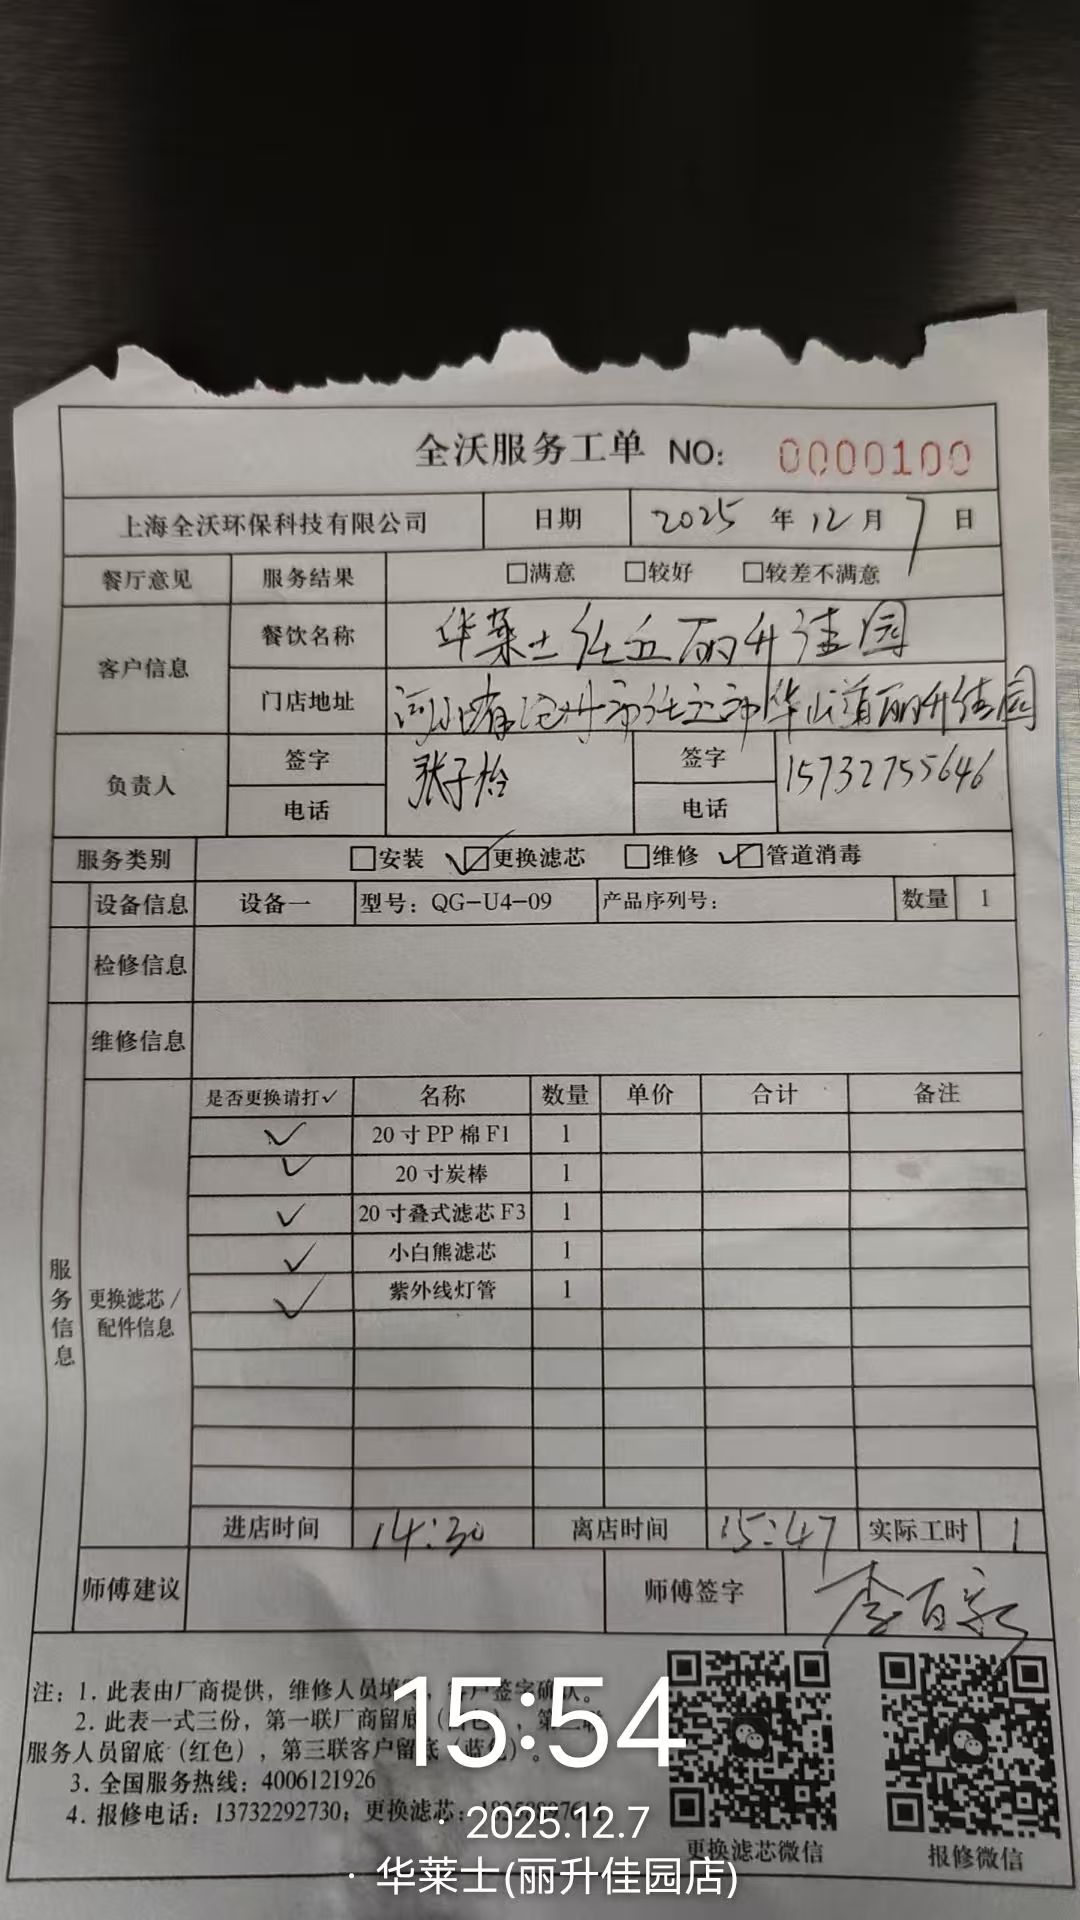 全沃服务工单 NO: 0000100
上海全沃环保科技有限公司 日期 2025 年 12 月 7 日
餐厅意见 服务结果 □满意 □较好 □较差不满意
客户信息 餐饮名称 华莱士任丘丽升佳园
门店地址 河北省沧州市任丘市华山道丽升佳园
负责人 签字 张子怡 签字 15732755646
电话 电话
服务类别 □安装 ☑更换滤芯 □维修 ☑管道消毒
设备信息 设备一 型号：QG-U4-09 产品序列号： 数量 1
检修信息
维修信息
服务信息
更换滤芯/配件信息
是否更换请打✓ 名称 数量 单价 合计 备注
✓ 20寸PP棉F1 1
✓ 20寸炭棒 1
✓ 20寸叠式滤芯F3 1
✓ 小白熊滤芯 1
✓ 紫外线灯管 1
进店时间 14:30 离店时间 15:47 实际工时 1
师傅建议 师傅签字 李百
注：1. 此表由厂商提供，维修人员填 签字确认。
2. 此表一式三份，第一联厂商留底
服务人员留底（红色），第三联客户留底（蓝色）。
3. 全国服务热线：4006121926
4. 报修电话：13732292730；更换滤芯：
更换滤芯微信 报修微信
15:54
· 2025.12.7
· 华莱士(丽升佳园店)